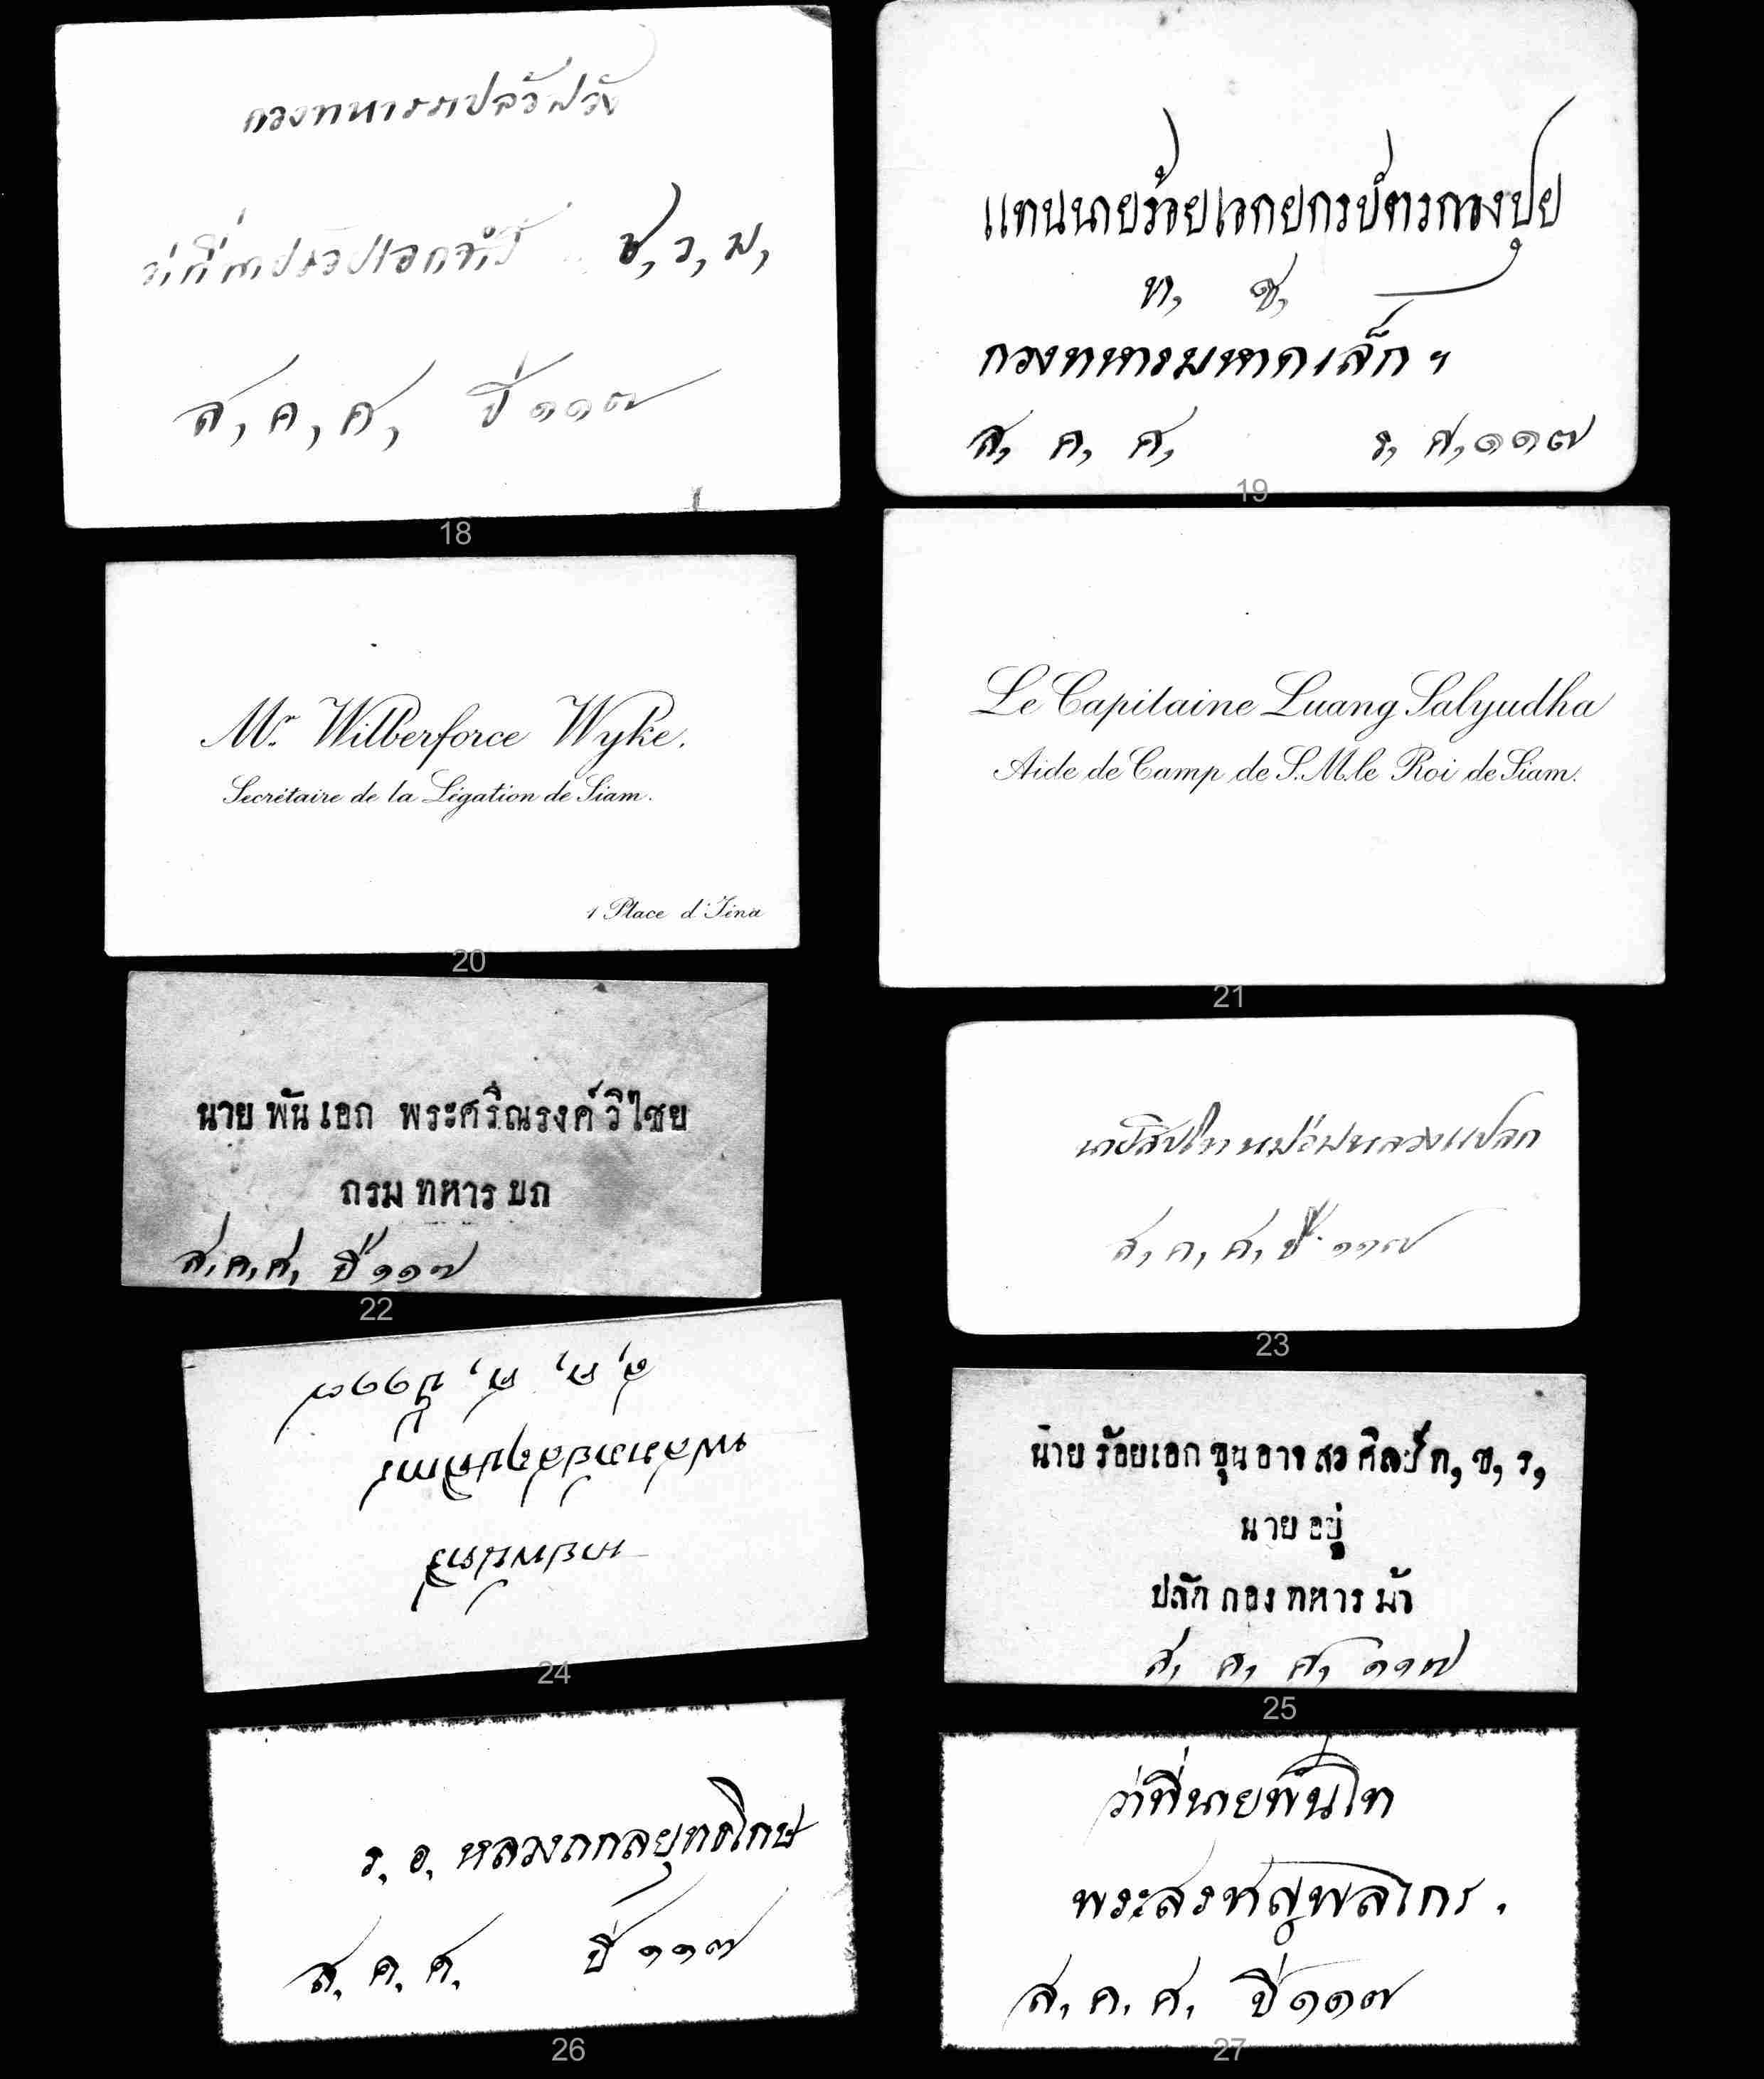 กองทหาร
ช, ว, ม,
ส, ค, ศ, ปี ๑๑๗
18
แทนนายร้อยเอกยกรบัตรกองปุย
ท, ช,
กองทหารมหาดเล็กฯ
ส, ค, ศ, ร, ศ, ๑๑๗
19
Mr. Wilberforce Wyke.
Secrétaire de la Légation de Siam.
1 Place d'Iéna
20
Le Capitaine Luang Salyudha
Aide de Camp de S. M. le Roi de Siam.
21
นาย พัน เอก พระศรีณรงค์วิไชย
กรม ทหาร บก
ส, ค, ศ, ปี ๑๑๗
22
ส, ค, ศ, ปี ๑๑๗
23
นายพันตรี
ส, ค, ศ, ปี ๑๑๗
24
นาย ร้อยเอก ขุน อาจ สร ศิลป์ ค, ช, ร,
นาย อยู่
ปลัด กอง ทหาร ม้า
ส, ค, ศ, ๑๑๗
25
ร, อ, หลวงถกลยุทธโกษ
ส, ค, ศ, ปี ๑๑๗
26
ว่าที่นายพันโท
พระสรหสุพลไกร.
ส, ค, ศ, ปี ๑๑๗
27